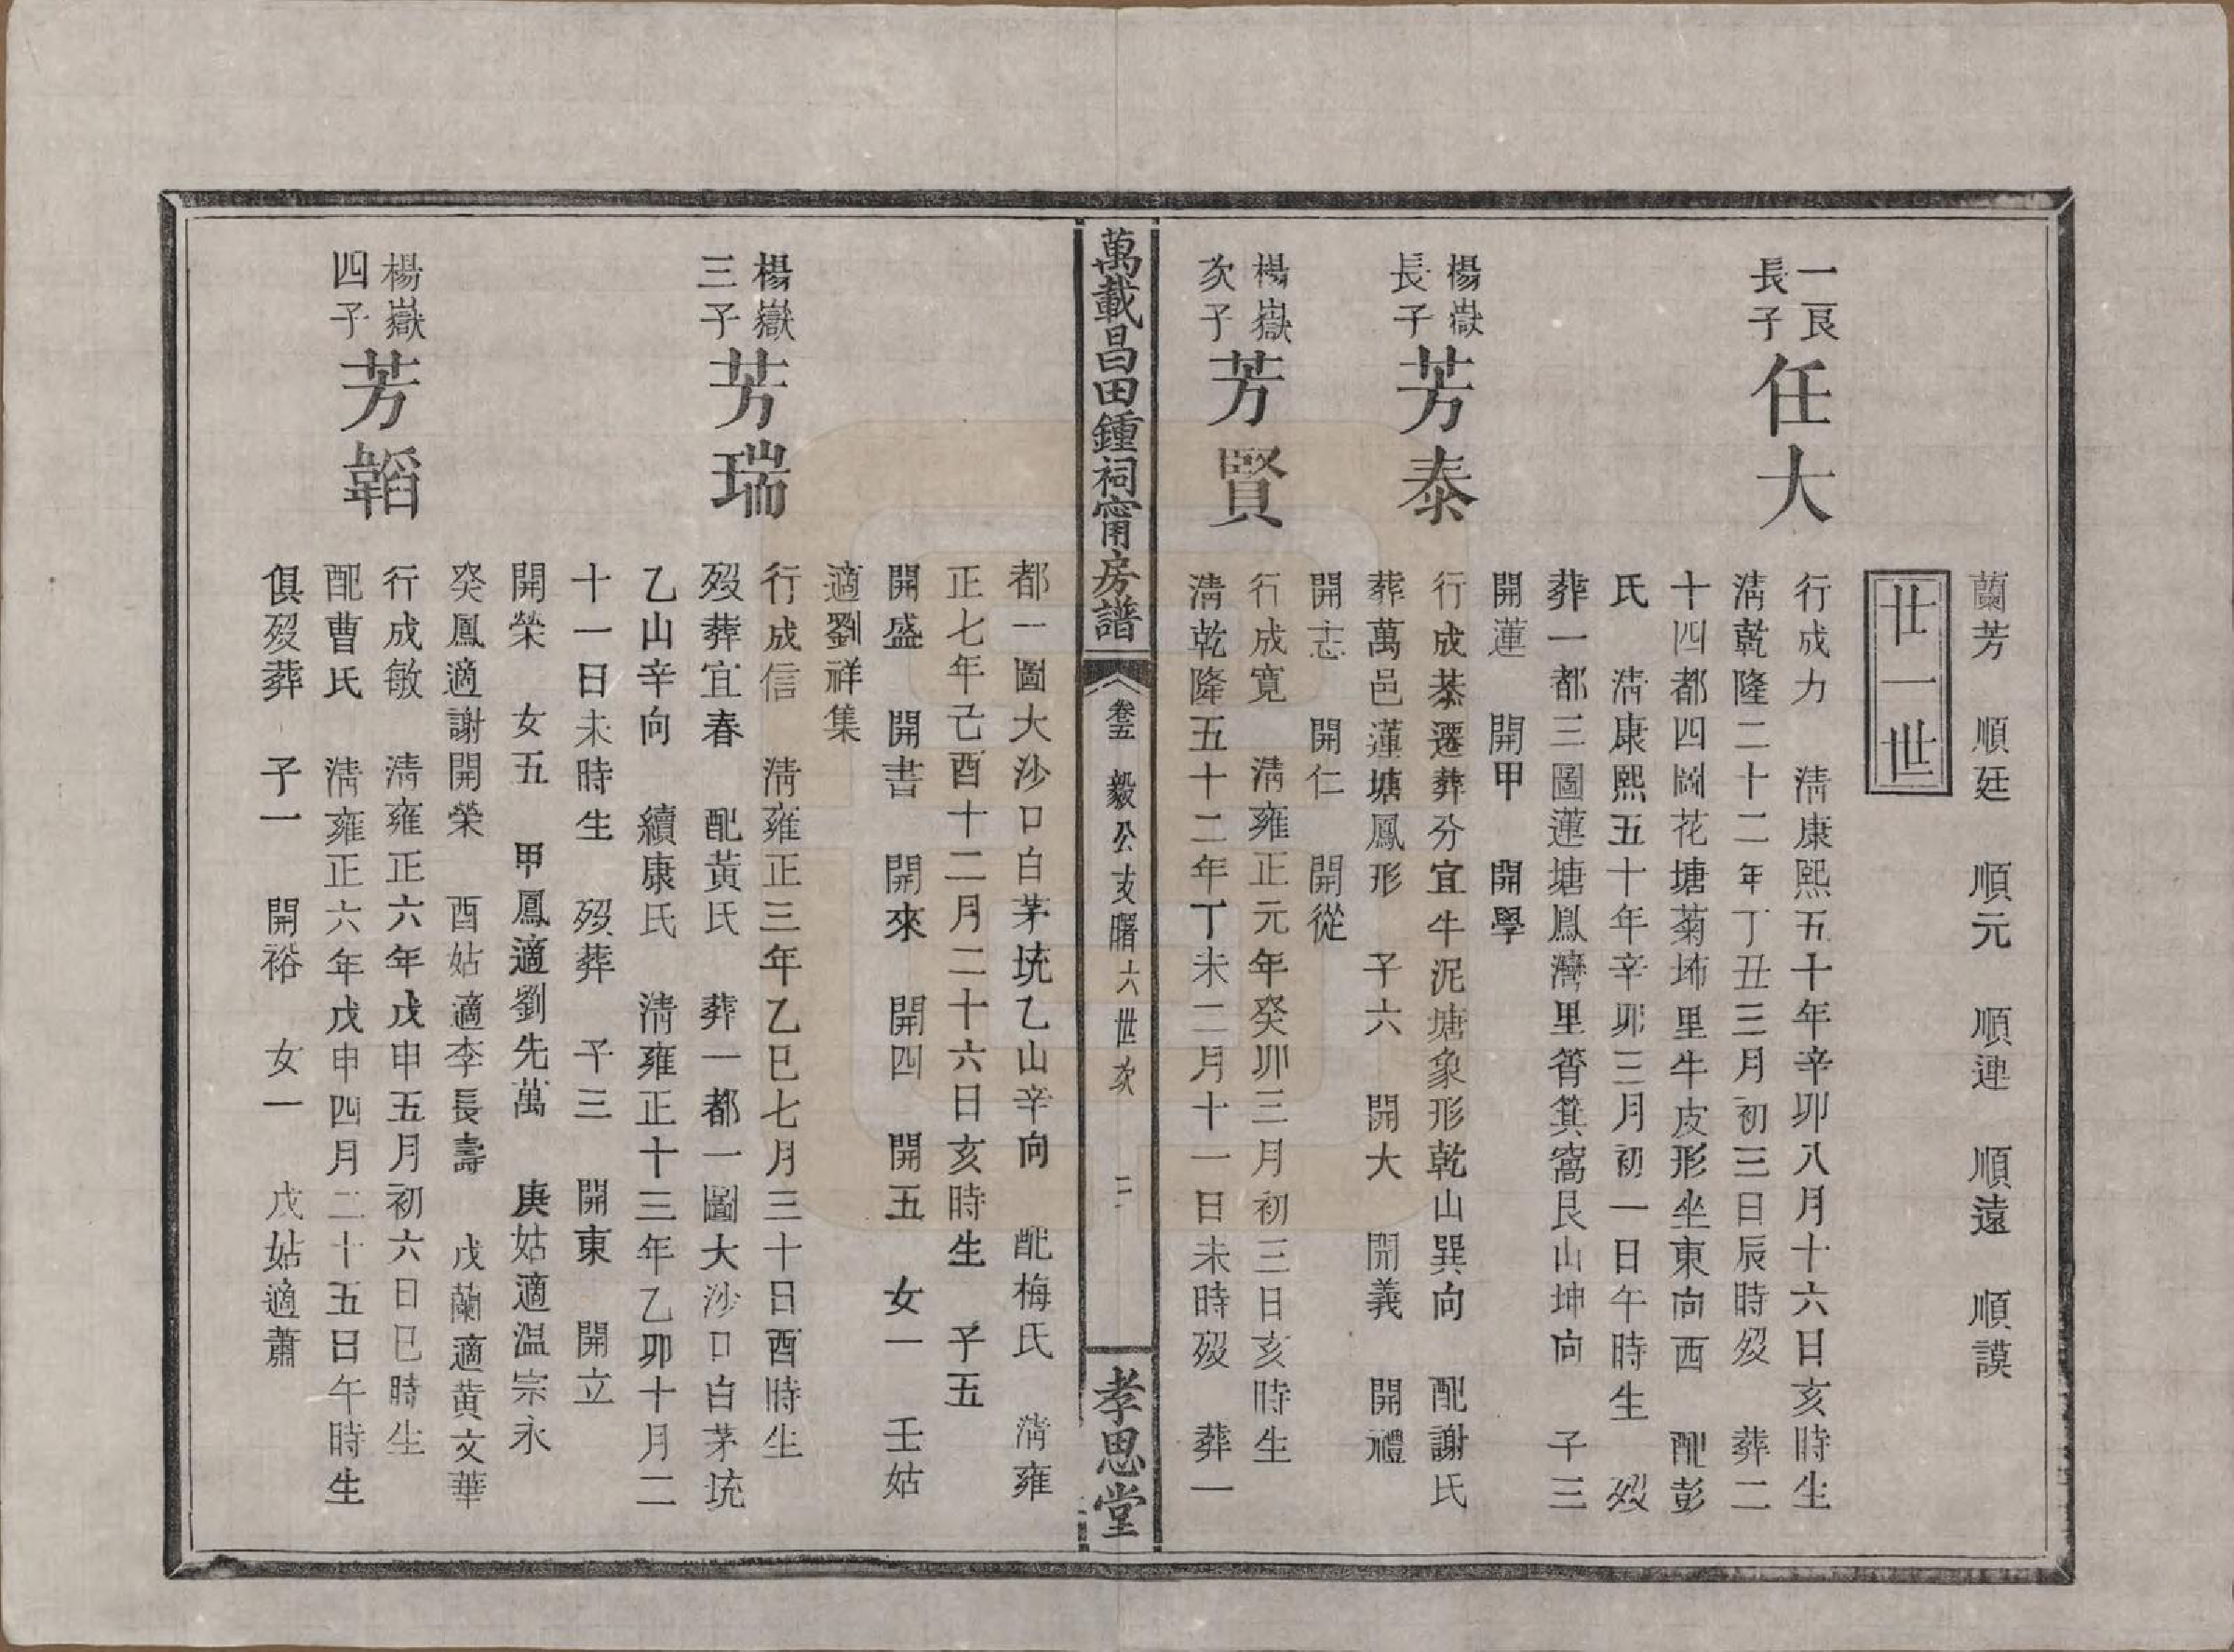 蘭芳　順廷　順元　順連　順遠　順謨
廿一世
一良長子
任大
行成力　淸康熙五十年辛卯八月十六日亥時生
淸乾隆二十二年丁丑三月初三日辰時歿　葬二
十四都四圖花塘菊㘵里牛皮形坐東向西　配彭
氏　淸康熙五十年辛卯三月初一日午時生　歿
葬一都三圖蓮塘鳳灣里筲箕窩艮山坤向　子三
開蓮　開甲　開學
楊嶽長子
芳泰
行成恭遷葬分宜牛泥塘象形乾山巽向　配謝氏
葬萬邑蓮塘鳳形　子六　開大　開義　開禮
開志　開仁　開從
楊嶽次子
芳賢
行成寬　淸雍正元年癸卯三月初三日亥時生
淸乾隆五十二年丁未二月十一日未時歿　葬一
萬載昌田鍾祠甯房譜
卷五　毅公支曙六世次　二
孝思堂
都一圖大沙口白茅坑乙山辛向　配梅氏　淸雍
正七年己酉十二月二十六日亥時生　子五
開盛　開書　開來　開四　開五　女一　壬姑
適劉祥集
楊嶽三子
芳瑞
行成信　淸雍正三年乙巳七月三十日酉時生
歿葬宜春　配黃氏　葬一都一圖大沙口白茅坑
乙山辛向　續康氏　淸雍正十三年乙卯十月二
十一日未時生　歿葬　子三　開東　開立
開榮　女五　甲鳳適劉先萬　庚姑適温宗永
癸鳳適謝開榮　酉姑適李長壽　戊蘭適黃文華
楊嶽四子
芳韜
行成敏　淸雍正六年戊申五月初六日巳時生
配曹氏　淸雍正六年戊申四月二十五日午時生
俱歿葬　子一　開裕　女一　戊姑適蕭